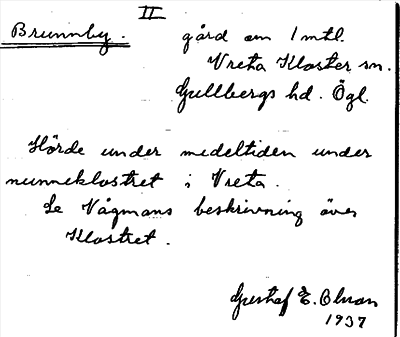 II
Brunnby. gård om 1 mtl.
Vreta Kloster sn.
Gullbergs hd. Ögl.
Hörde under medeltiden under
nunneklostret i Vreta.
Se Vågmans beskrivning över
Klostret.
Gustaf E. Olsson
1937